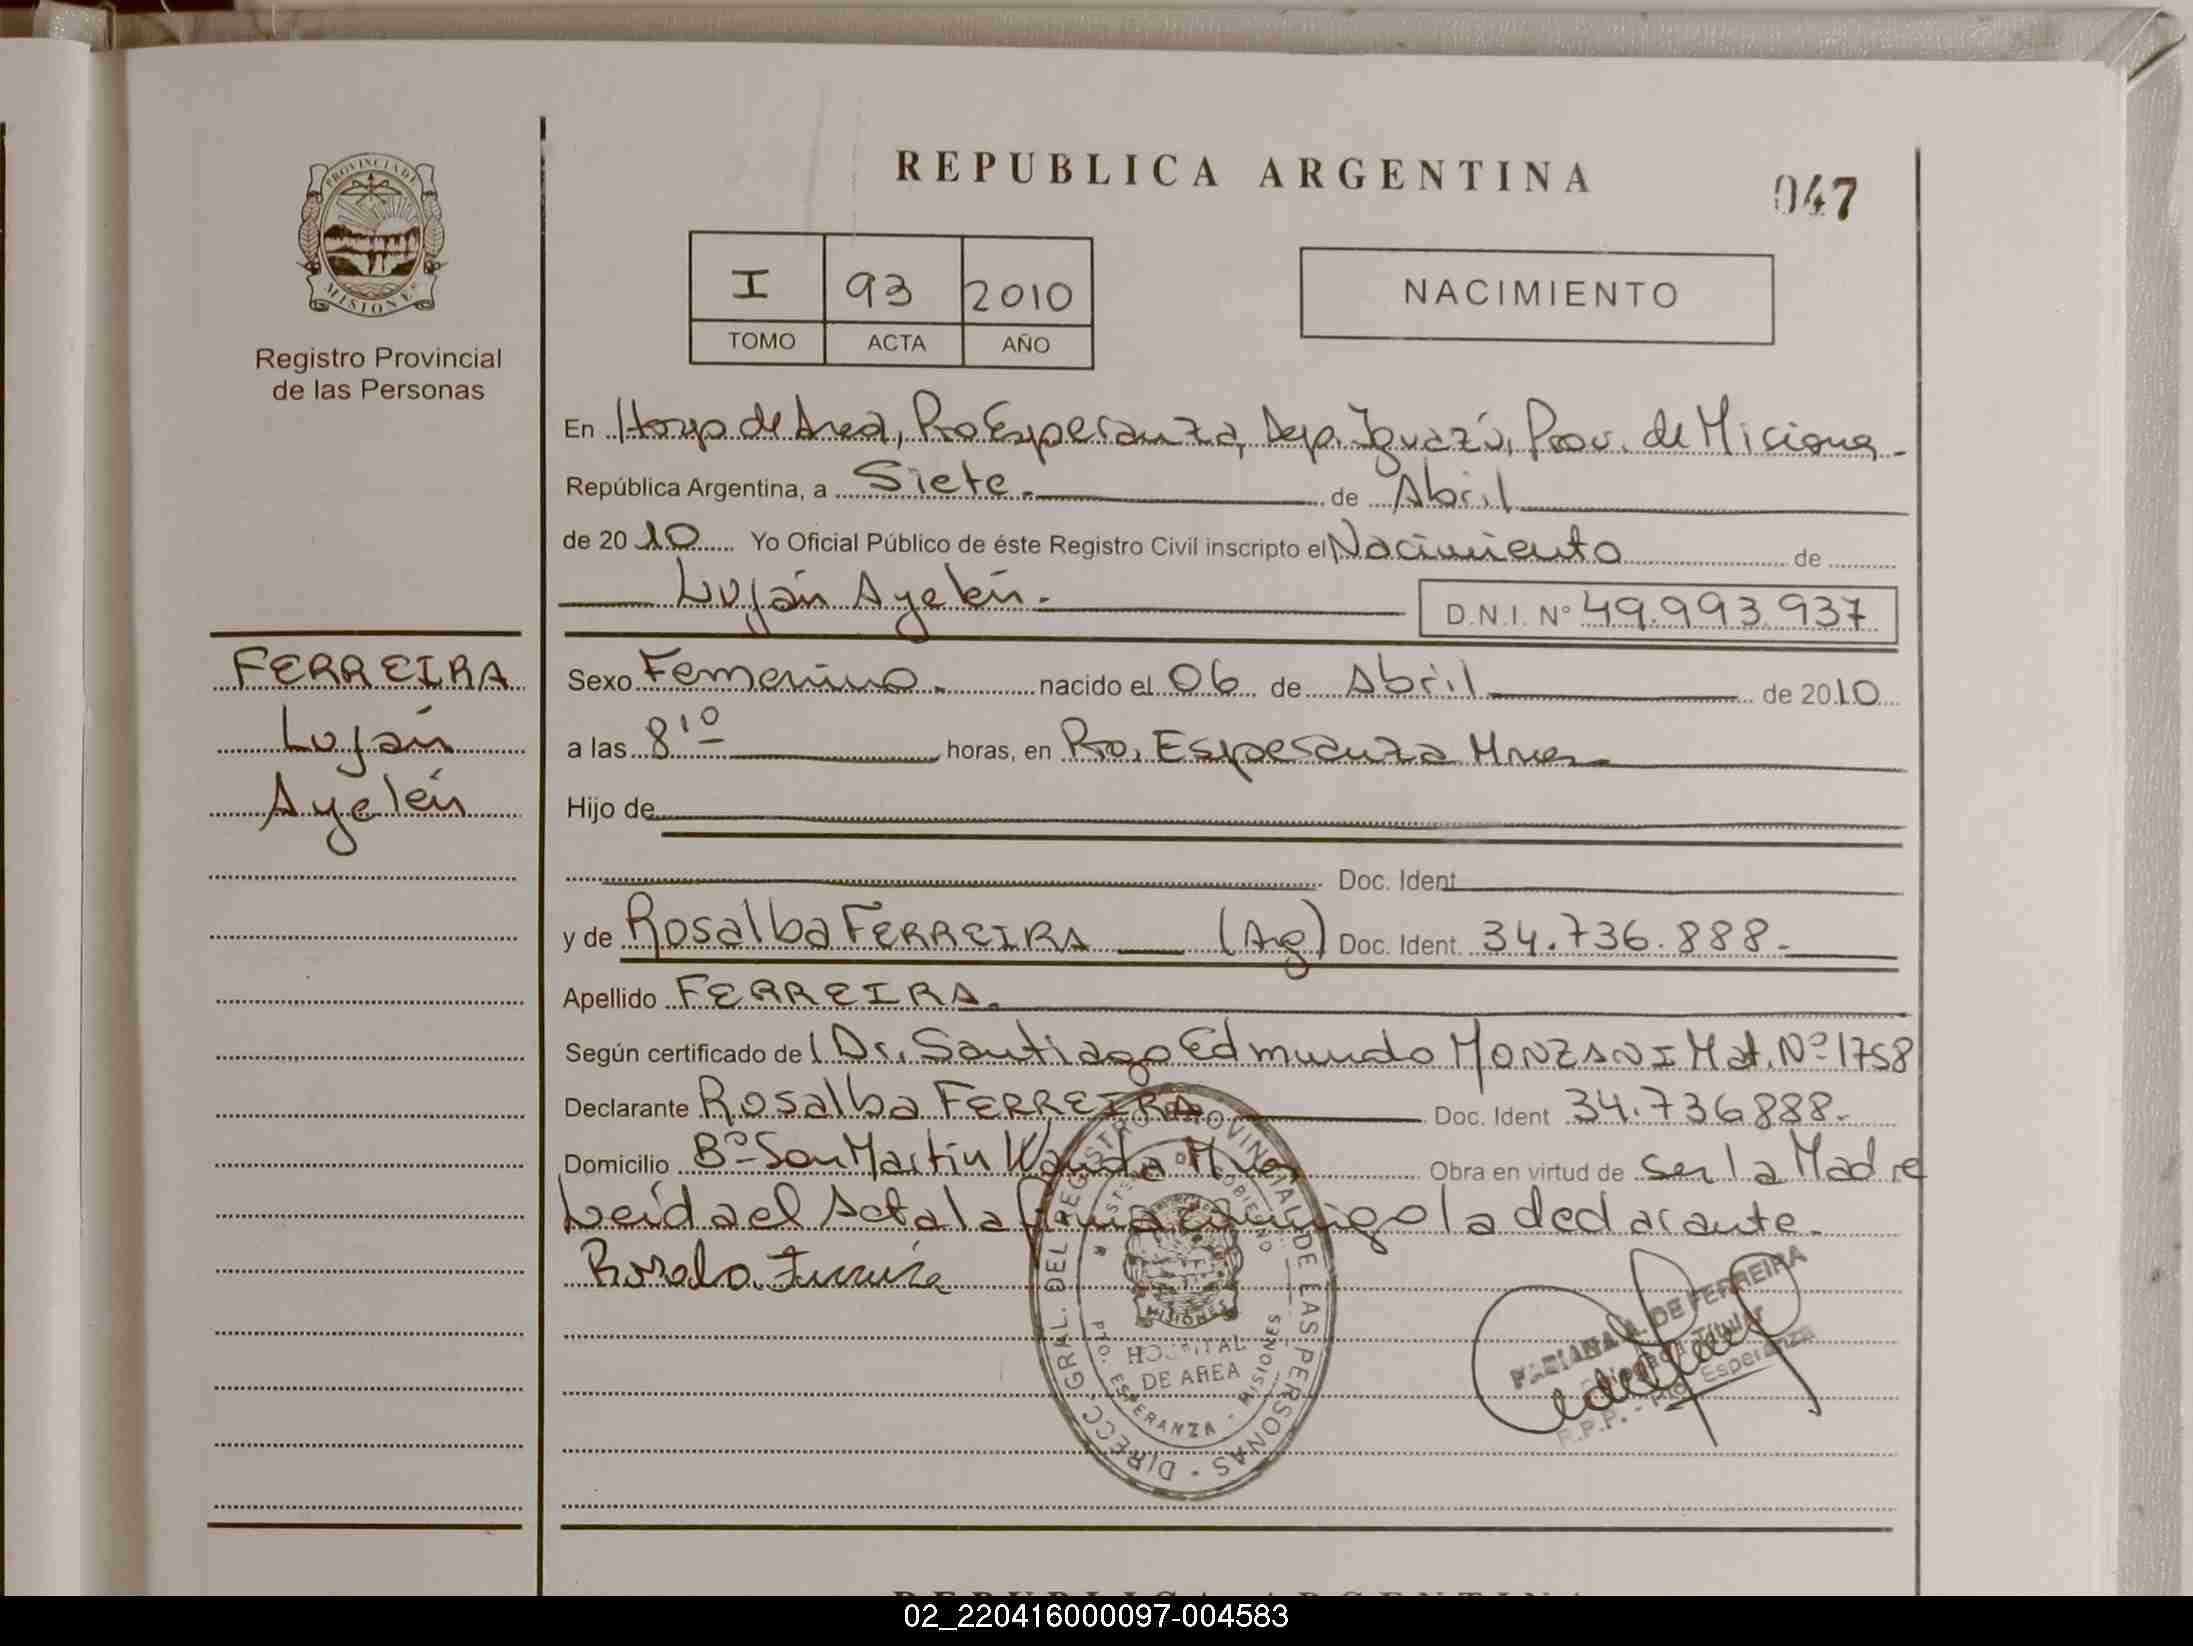 REPUBLICA ARGENTINA
047
PROVINCIA DE
MISIONES
Registro Provincial
de las Personas
I 93 2010
TOMO ACTA AÑO
NACIMIENTO
En Hosp de Area, Pto Esperanza, Dep. Iguazú, Prov. de Misiones
República Argentina, a Siete. de Abril
de 2010 Yo Oficial Público de éste Registro Civil inscripto el Nacimiento de
Luján Ayelén.
D.N.I. Nº 49.993.937
FERREIRA
Luján
Ayelén
Sexo Femenino. nacido el 06 de Abril de 2010
a las 8'10 horas, en Pto. Esperanza Mnes
Hijo de
Doc. Ident.
y de Rosalba FERREIRA (Arg) Doc. Ident. 34.736.888.
Apellido FERREIRA.
Según certificado del Dr. Santiago Edmundo MONZANI Mat. Nº 1758
Declarante Rosalba FERREIRA Doc. Ident 34.736888.
Domicilio Bº San Martín Wanda Mnes Obra en virtud de ser la Madre
Leída el Acta la firma conmigo la declarante.
DIRECC. GRAL. DEL REGISTRO PROVINCIAL DE LAS PERSONAS
MISIONES
HOSPITAL
DE AREA
PTO. ESPERANZA - MISIONES
DE FERREIRA
Titular
R.P.P. - Pto. Esperanza
REPUBLICA ARGENTINA
02_220416000097-004583